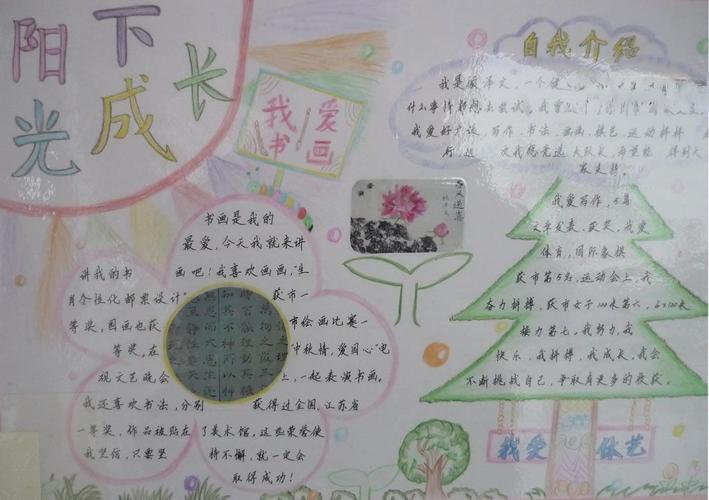 阳光下成长
我爱
书画
书画是我的
最爱,今天我就来讲
讲我的书 画吧!我喜欢画画,“生
肖个性化邮票设计” 获市一
等奖,国画也获 市绘画比赛一
等奖,在 “中秋情,爱国心”电
视文艺晚会 上,一起表演书画。
我还喜欢书法,分别 获得过全国、江苏省
一等奖,作品被贴在 了美术馆,这些荣誉使
我坚信,只要坚 持不懈,就一定会
取得成功!
春风送喜
自我介绍
我是顾泽文,一个
什么事情都想去尝试,我
我爱好广泛,写作、书法、画画、棋艺、运动样样
行, 次我想竞选大队长,希望能 得到大
家支持。
我爱写作,
文章发表、获奖,我爱
体育,国际象棋
获市第5名,运动会上,我
奋力拼搏,获市女子100米第六,4×100米
接力第七。我努力,我
快乐,我拼搏,我成长,我会
不断挑战自己,争取有更多的收获。
我爱 体艺